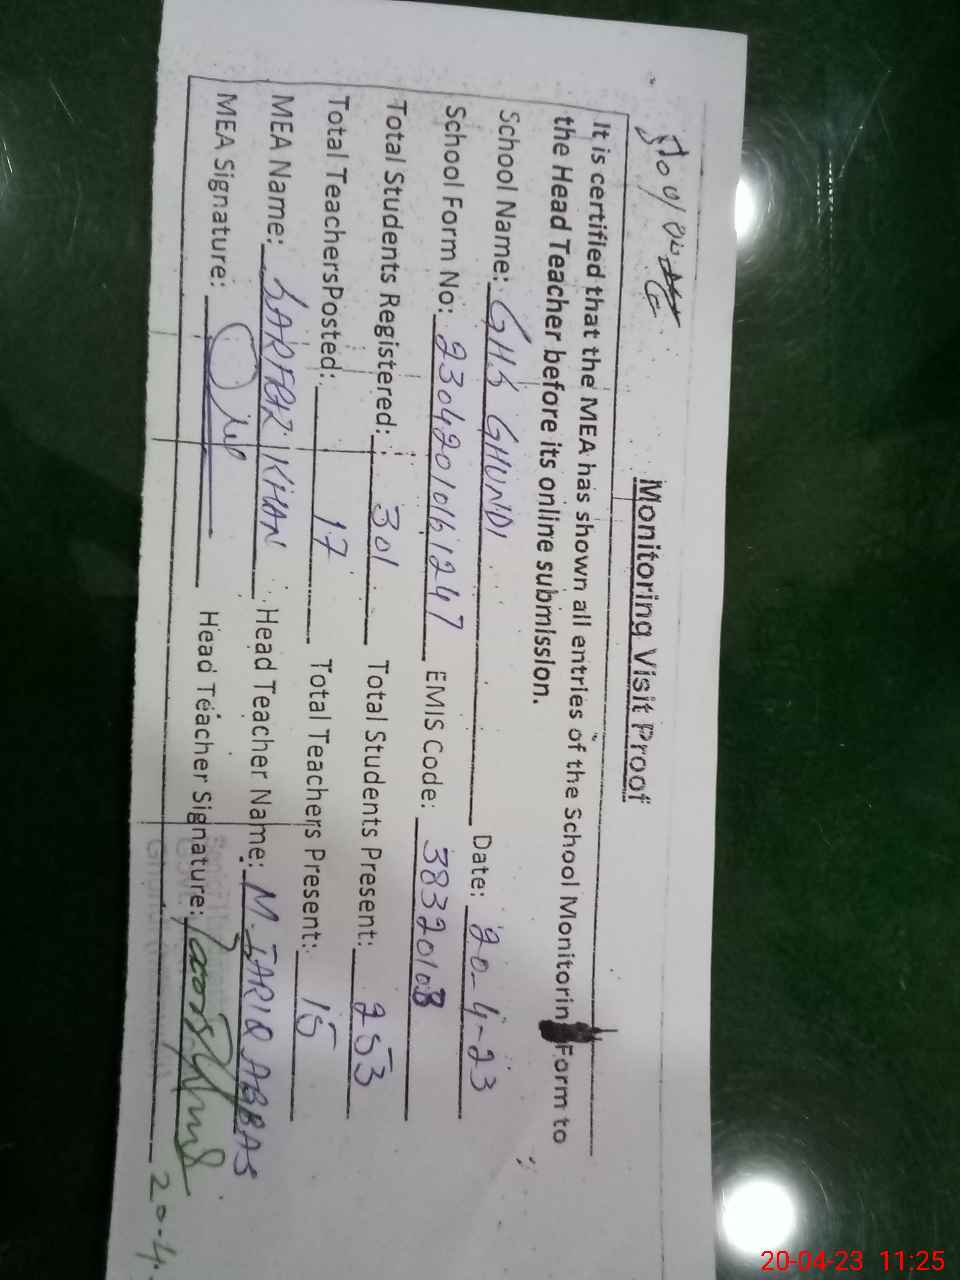 Monitoring Visit Proof
It is certified that the MEA has shown all entries of the School Monitorin Form to
the Head Teacher before its online submission.
School Name: GHS GHUNDI Date: 20-4-23
School Form No: 23042010161247 EMIS Code: 38320108
Total Students Registered: 301 Total Students Present: 253
Total TeachersPosted: 17 Total Teachers Present: 15
MEA Name: KHAN Head Teacher Name: M. TARIQ ABBAS
MEA Signature: Head Teacher Signature:
20-4-
20-04-23 11:25